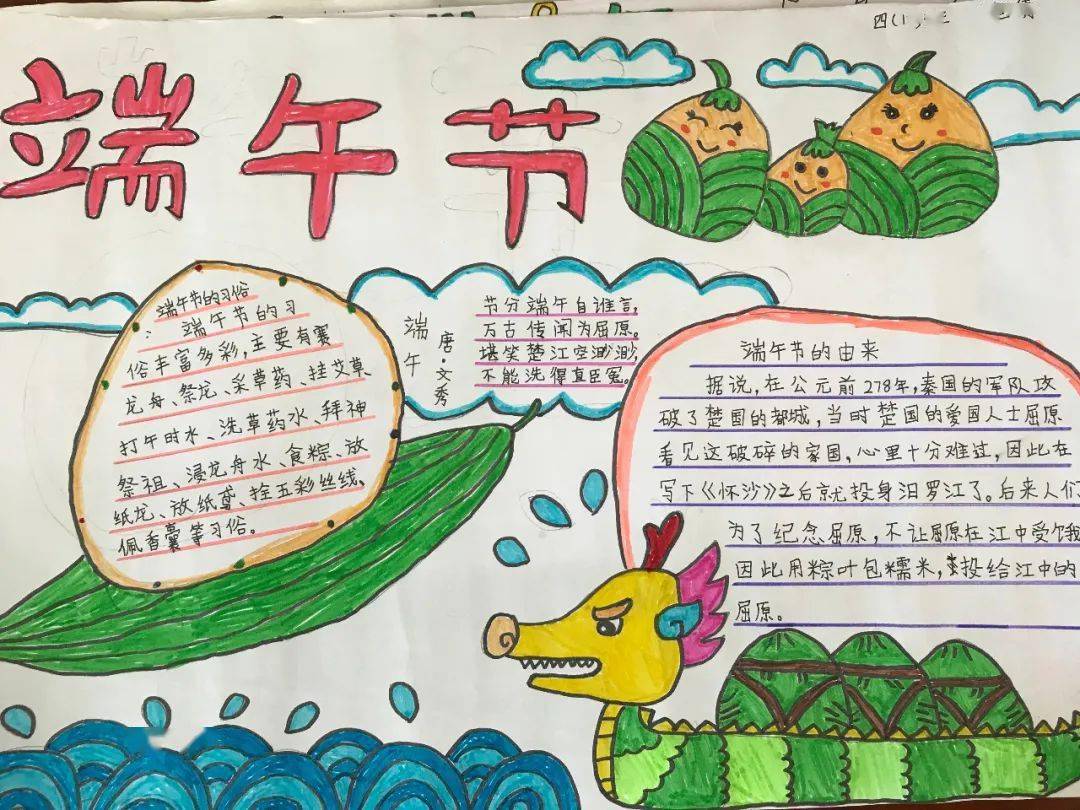 端午节
端午节的习俗
: 端午节的习
俗丰富多彩,主要有赛
龙舟、祭龙、采草药、挂艾草、
打午时水、洗草药水、拜神
祭祖、浸龙舟水、食粽、放
纸龙、放纸鸢、拴五彩丝线、
佩香囊等习俗。
端午
唐·文秀
节分端午自谁言,
万古传闻为屈原。
堪笑楚江空渺渺,
不能洗得直臣冤。
端午节的由来
据说,在公元前278年,秦国的军队攻
破了楚国的都城,当时楚国的爱国人士屈原
看见这破碎的家国,心里十分难过,因此在
写下《怀沙》之后就投身汨罗江了。后来人们
为了纪念屈原,不让屈原在江中受饿
因此用粽叶包糯米,投给江中的
屈原。